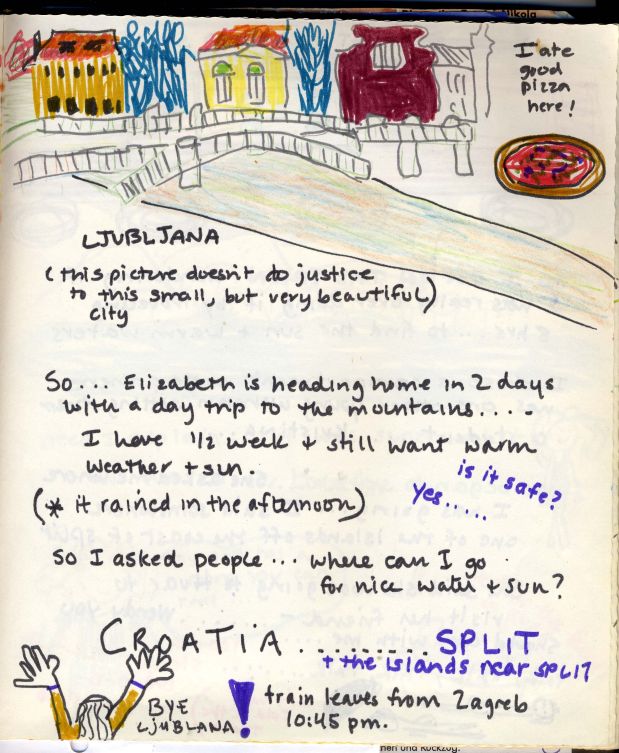 I ate
good
pizza
here!
LJUBLJANA
(this picture doesn't do justice
to this small, but very beautiful)
city
So.... Elizabeth is heading home in 2 days
with a day trip to the mountains.....
I have 1/2 week + still want warm
weather + sun.
is it safe?
yes.....
(* it rained in the afternoon)
So I asked people... where can I go
for nice water + sun?
CROATIA ......... SPLIT
+ the islands near SPLIT
BYE
LJUBLANA!
train leaves from Zagreb
10:45 pm.
nen und Rückzug.